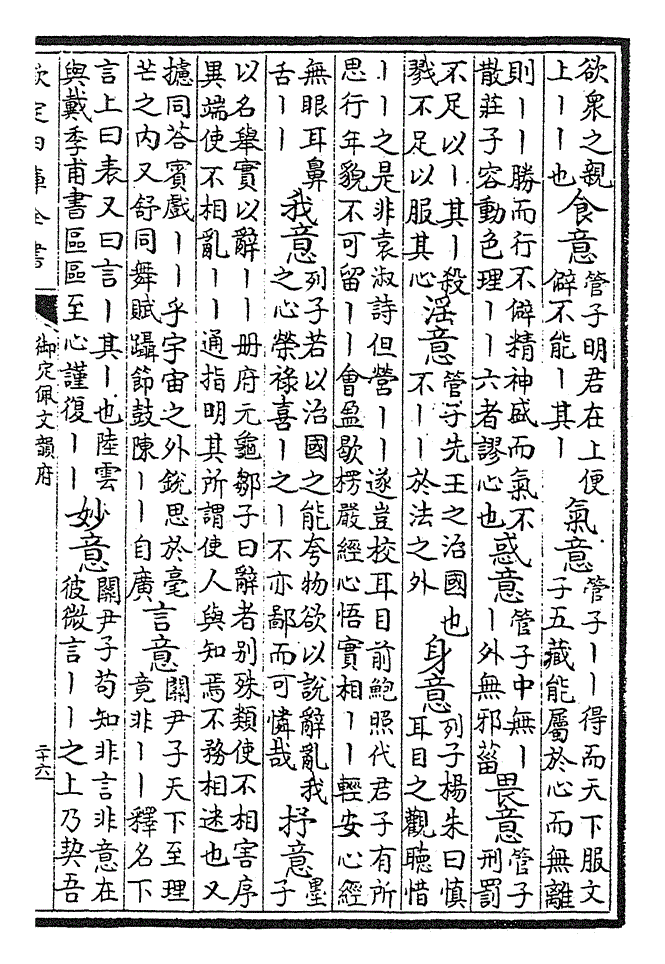 欲衆之親
上丨丨也
食意
管子明君在上便
僻不能丨其丨
氣意
管子丨丨得而天下服文
子五藏能屬於心而無離
則丨丨勝而行不僻精神盛而氣不
散莊子容動色理丨丨六者謬心也
惑意
管子中無丨
丨外無邪菑
畏意
管子
刑罰
不足以丨其丨殺
戮不足以服其心
淫意
管子先王之治國也
不丨丨於法之外
身意
列子楊朱曰慎
耳目之觀聽惜
丨丨之是非袁淑詩但營丨丨遂豈校耳目前鮑照代君子有所
思行年貌不可留丨丨會盈歇楞嚴經心悟實相丨丨輕安心經
無眼耳鼻
舌丨丨
我意
列子若以治國之能夸物欲以說辭亂我
之心榮祿喜丨之丨不亦鄙而可憐哉
抒意
墨
子
以名舉實以辭丨丨冊府元龜鄒子曰辭者别殊類使不相害序
異端使不相亂丨丨通指明其所謂使人與知焉不務相迷也又
攄同答賓戲丨丨乎宇宙之外銳思於毫
芒之內又舒同舞賦躡節鼓陳丨丨自廣
言意
關尹子天下至理
竟非丨丨釋名下
言上曰表又曰言丨其丨也陸雲
與戴季甫書區區至心謹復丨丨
妙意
關尹子苟知非言非意在
彼微言丨丨之上乃契吾
欽定四庫全書
御定佩文韻府
二十六